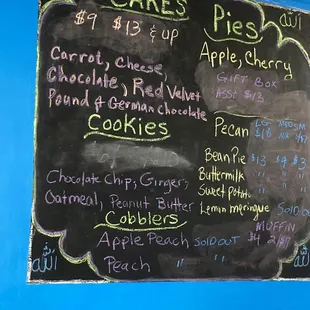 CAKES
$9 $13 & up
Carrot, Cheese,
Chocolate, Red Velvet
Pound & German Chocolate
Cookies
Chocolate Chip, Ginger,
Oatmeal, Peanut Butter
Cobblers
Apple Peach SOLD OUT
Peach " "
Pies
الله
Apple, Cherry
GIFT BOX
ASST $13
Pecan LG
$18
Bean Pie $13 $4 $3
Buttermilk " " "
Sweet Potato " " "
Lemon meringue SOLD OUT
MUFFIN
$4
الله
الله